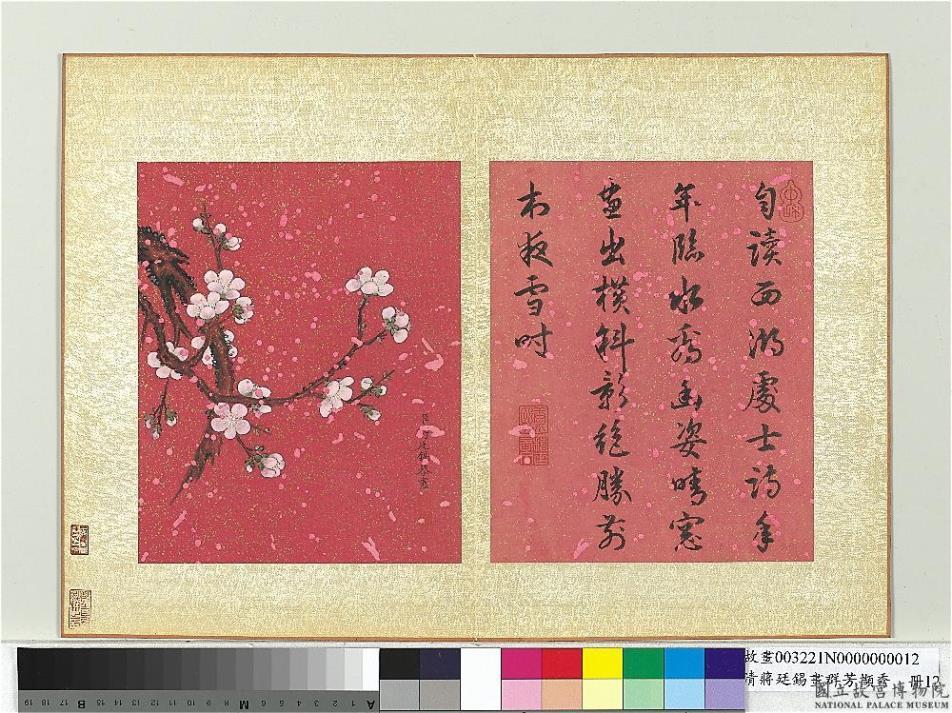 自讀西湖處士詩年
年臨水看幽姿晴窓
畫出橫斜影絕勝前
村夜雪时
臣蔣廷錫恭畫
故畫003221N0000000012
清蔣廷錫畫群芳擷秀 冊12
國立故宮博物院
NATIONAL PALACE MUSEUM
19 18 17 16 15 B 14 13 12 11 10 9 8 7 M 6 5 4 3 2 1 A